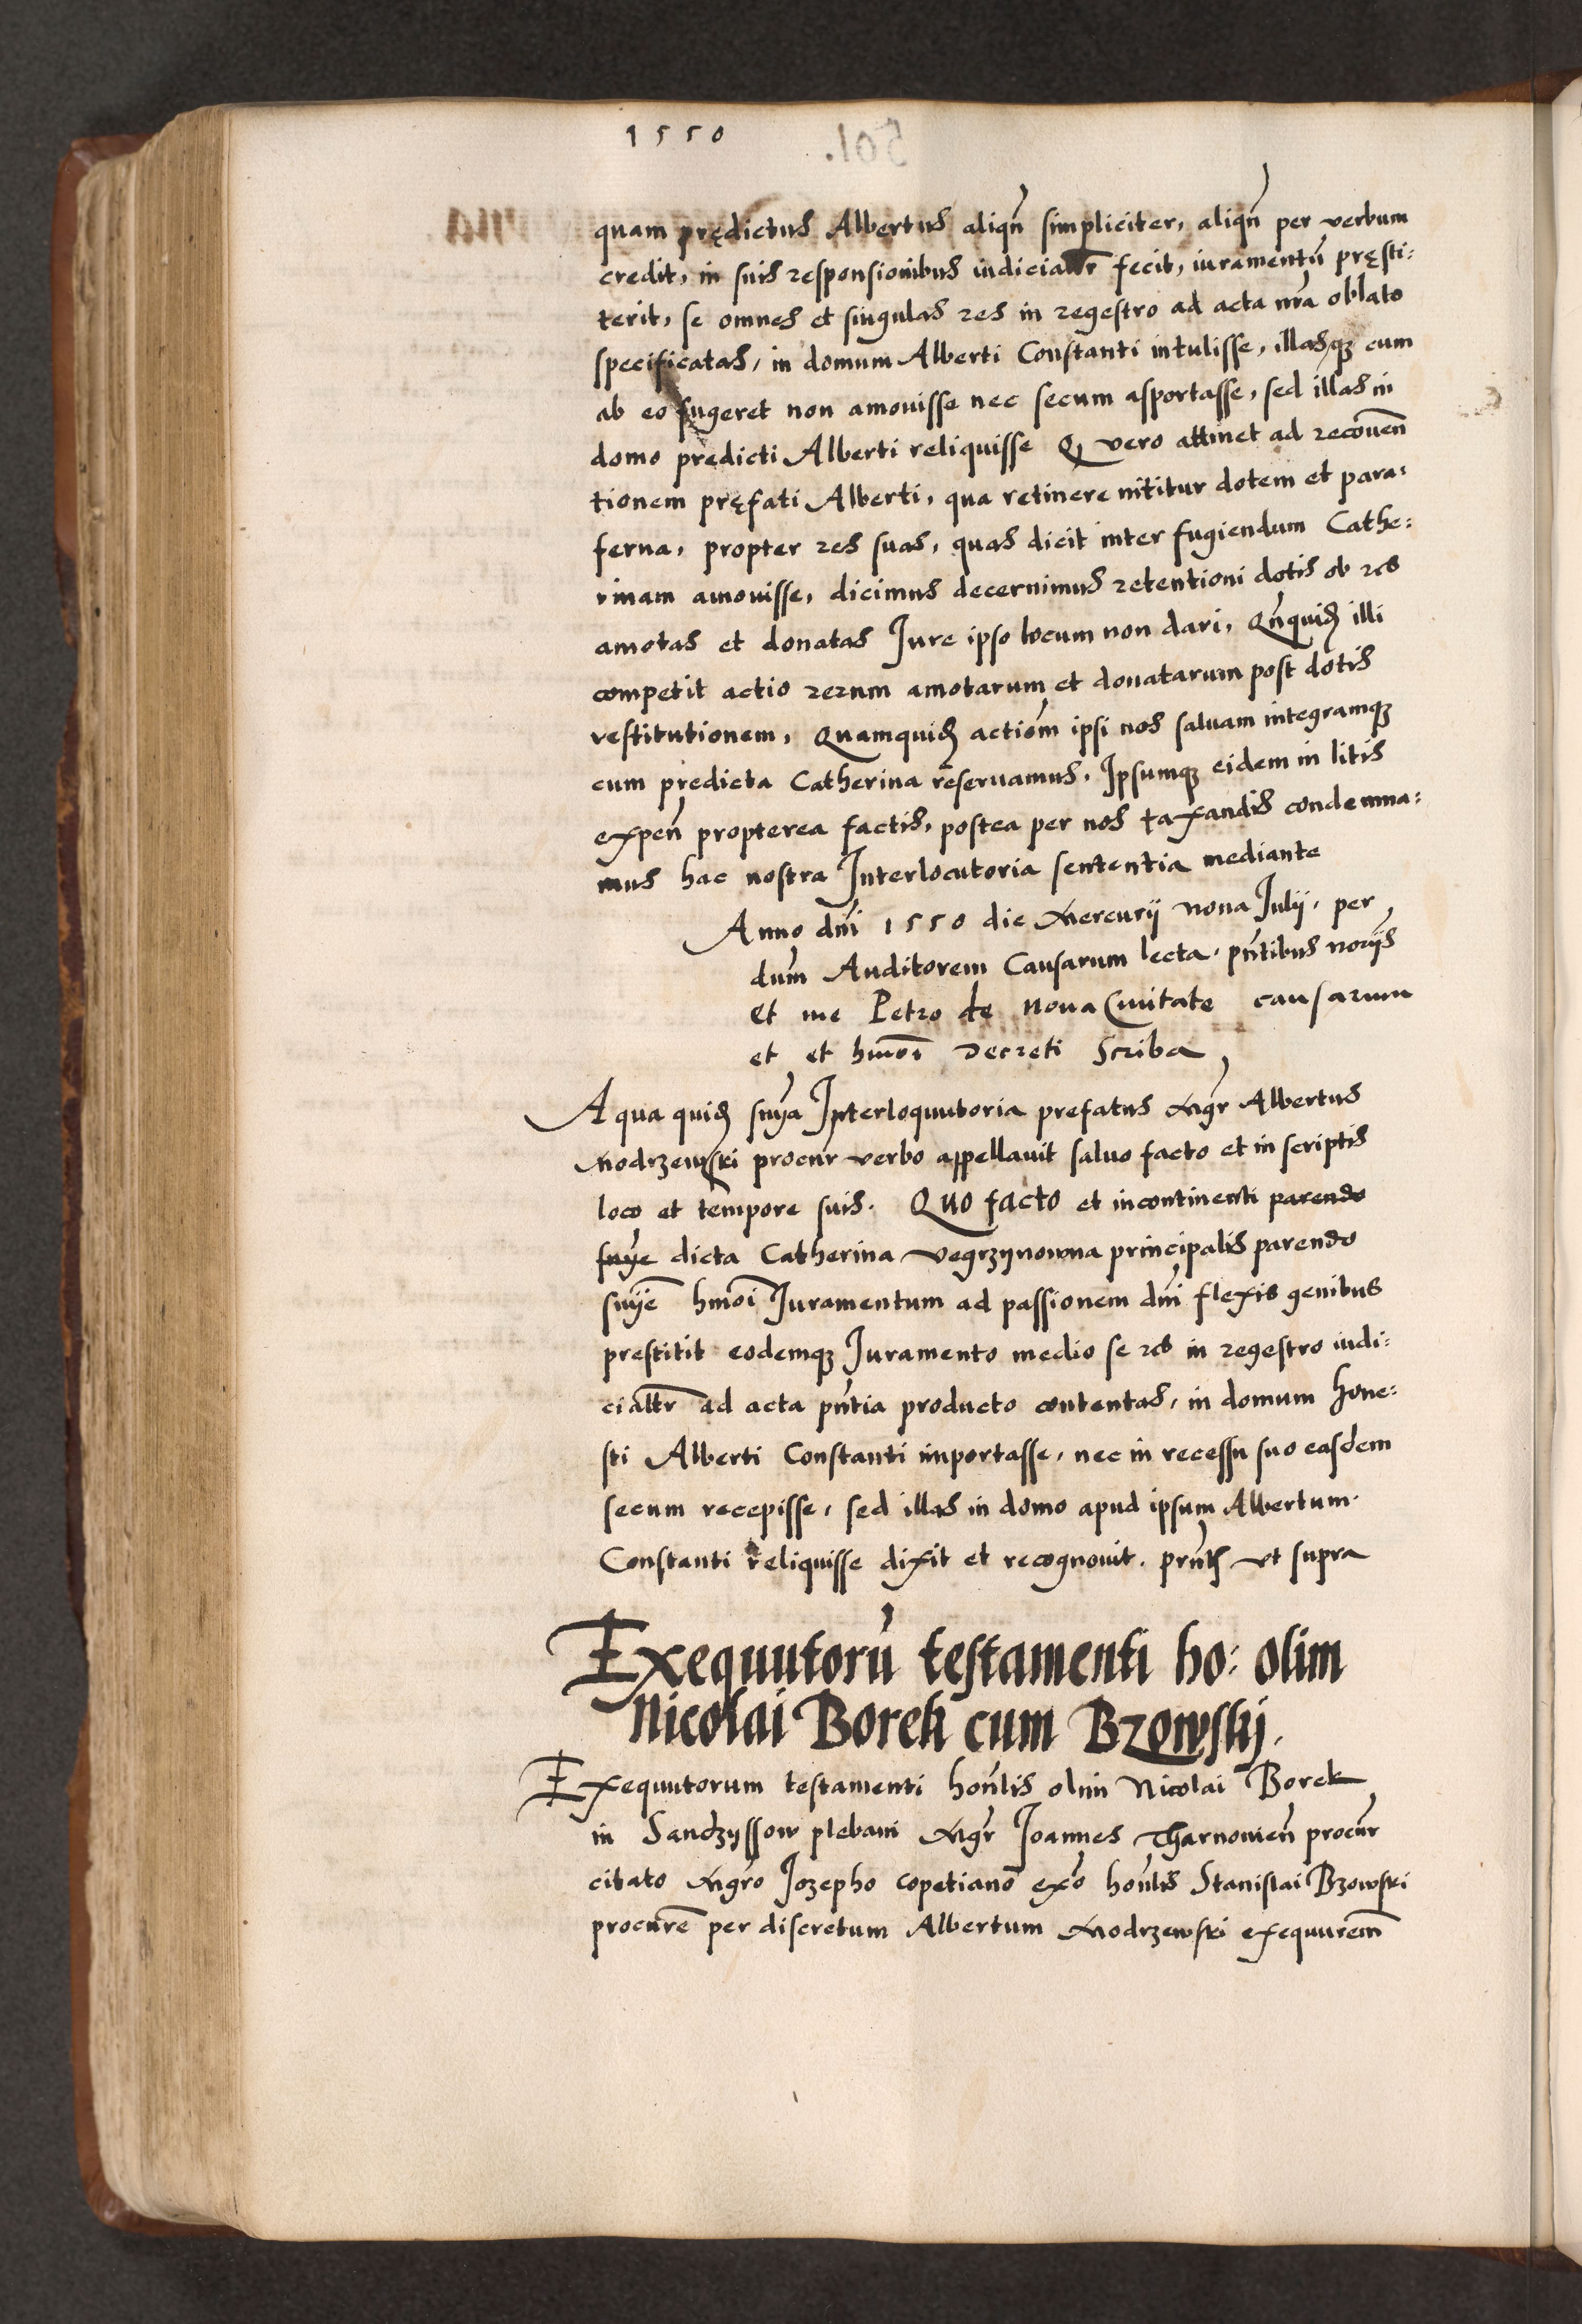 1550
quam prędictus Albertus aliqn̄ simpliciter, aliqn̄ per verbum
credit, in suis responsionibus iudicialtr̄ fecit, iuramentū pręsti:
terit, se omnes et singulas res in regestro ad acta nr̄a oblato
specificatas, in domum Alberti Constanti intulisse, illasqȝ cum
ab eo fugeret non amouisse nec secum asportasse, sed illas in
domo prędicti Alberti reliquisse Qꝫ vero attinet ad recōuen̄
tionem pręfati Alberti, qua retinere nititur dotem et para,
ferna, propter res suas, quas dicit inter fugiendum Cathe:
rinam amouisse, dicimus decernimus retentioni dotis ob res
amotas et donatas Jure ipso locum non dari, Qn̄quidꝫ illi
competit actio rerum amotarum et donatarum post dotis
restitutionem, Quamquidꝫ actiom̄ ipsi nos saluam integramqȝ
cum prędicta Catherina reseruamus, Ipsumqȝ eidem in litis
expen̄ propterea factis, postea per nos taxandis condemna:
mus hac nostra Interlocutoria sententia mediante
Anno dn̄i 1550 die Mercurij nona Julij, per
dum̄ Auditorem Causarum lecta, pn̄tibus norijs
Et me Petro de Noua Ciuitate causarum
et et hmōi Decreti Scriba
A qua quidꝫ sn̄ya Interloquutoria prefatus Mgr̄ Albertus
Modrzewski procur̄ verbo appellauit saluo facto et in scriptis
loco et tempore suis. Quo facto et incontinenti parendo
sn̄ye dicta Catherina Vegrzynowna principalis parendo
sn̄ye hmōi Juramentum ad passionem dn̄i flexis genibus
prestitit eodemqȝ Juramento medio se res in regestro iudi:
cialtr̄ ad acta pn̄tia producto contentas, in domum hone:
sti Alberti Constanti importasse, nec in recessu suo easdem
secum recepisse, sed illas in domo apud ipsum Albertum
Constanti reliquisse dixit et recognouit. prn̄tꝫ vt supra
Exequutorū testamenti ho: olim
Nicolai Borek cum Bzowskj.
Exequutorum testamenti honlis olim Nicolai Borek
in Sandzyssow plebani Mgr̄ Joannes Tharnouien̄ procur̄
citato Mgr̄o Jozepho copetiano exō honlis Stanislai Bzowski
procurē per discretum Albertum Modrzewski exequurem̄